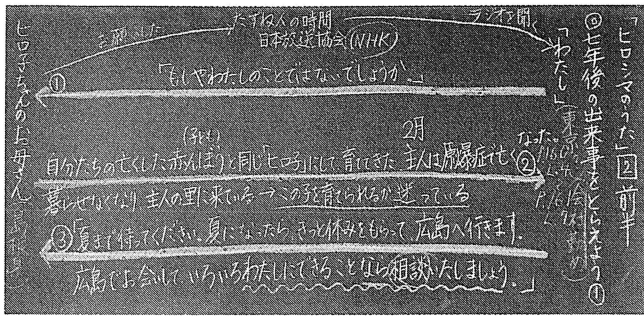 「ヒロシマのうた」 2 前半
◎七年後の出来事をとらえよう ①
「わたし」(東京
ラジオを聞く
たずね人の時間
日本放送協会(NHK)
お願いした
①
「もしやわたしのことではないでしょうか。」
②
(子ども)
2月
自分たちの亡くした赤んぼうと同じ「ヒロ子」にして育ててきた 主人は原爆症で亡くなった。
暮らせなくなり 主人の里に来ている→この子を育てられるか迷っている
③「夏まで待ってください。夏になったら、きっと休みをもらって、広島へ行きます。
広島でお会いしていろいろわたしにできることなら相談いたしましょう。」
ヒロ子ちゃんのお母さん